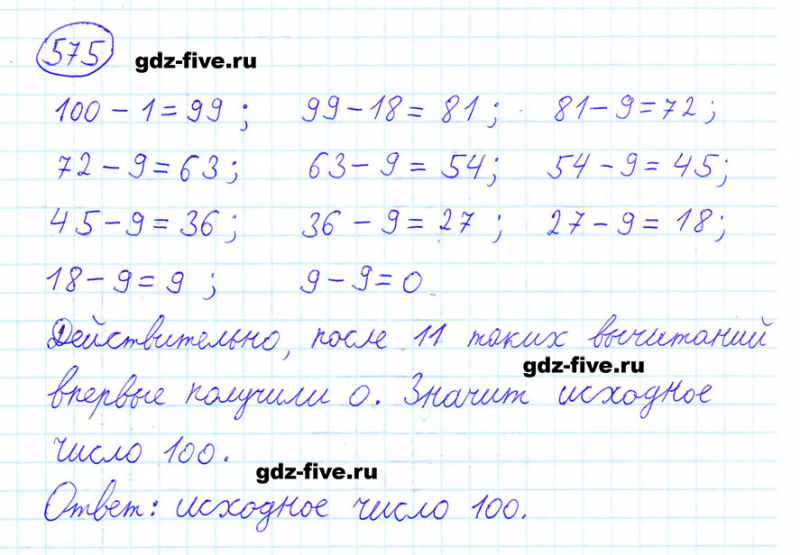 575 gdz-five.ru
100 - 1 = 99; 99 - 18 = 81; 81 - 9 = 72;
72 - 9 = 63; 63 - 9 = 54; 54 - 9 = 45;
45 - 9 = 36; 36 - 9 = 27; 27 - 9 = 18;
18 - 9 = 9; 9 - 9 = 0
Действительно, после 11 таких вычитаний
gdz-five.ru
впервые получили 0. Значит исходное
число 100.
gdz-five.ru
Ответ: исходное число 100.